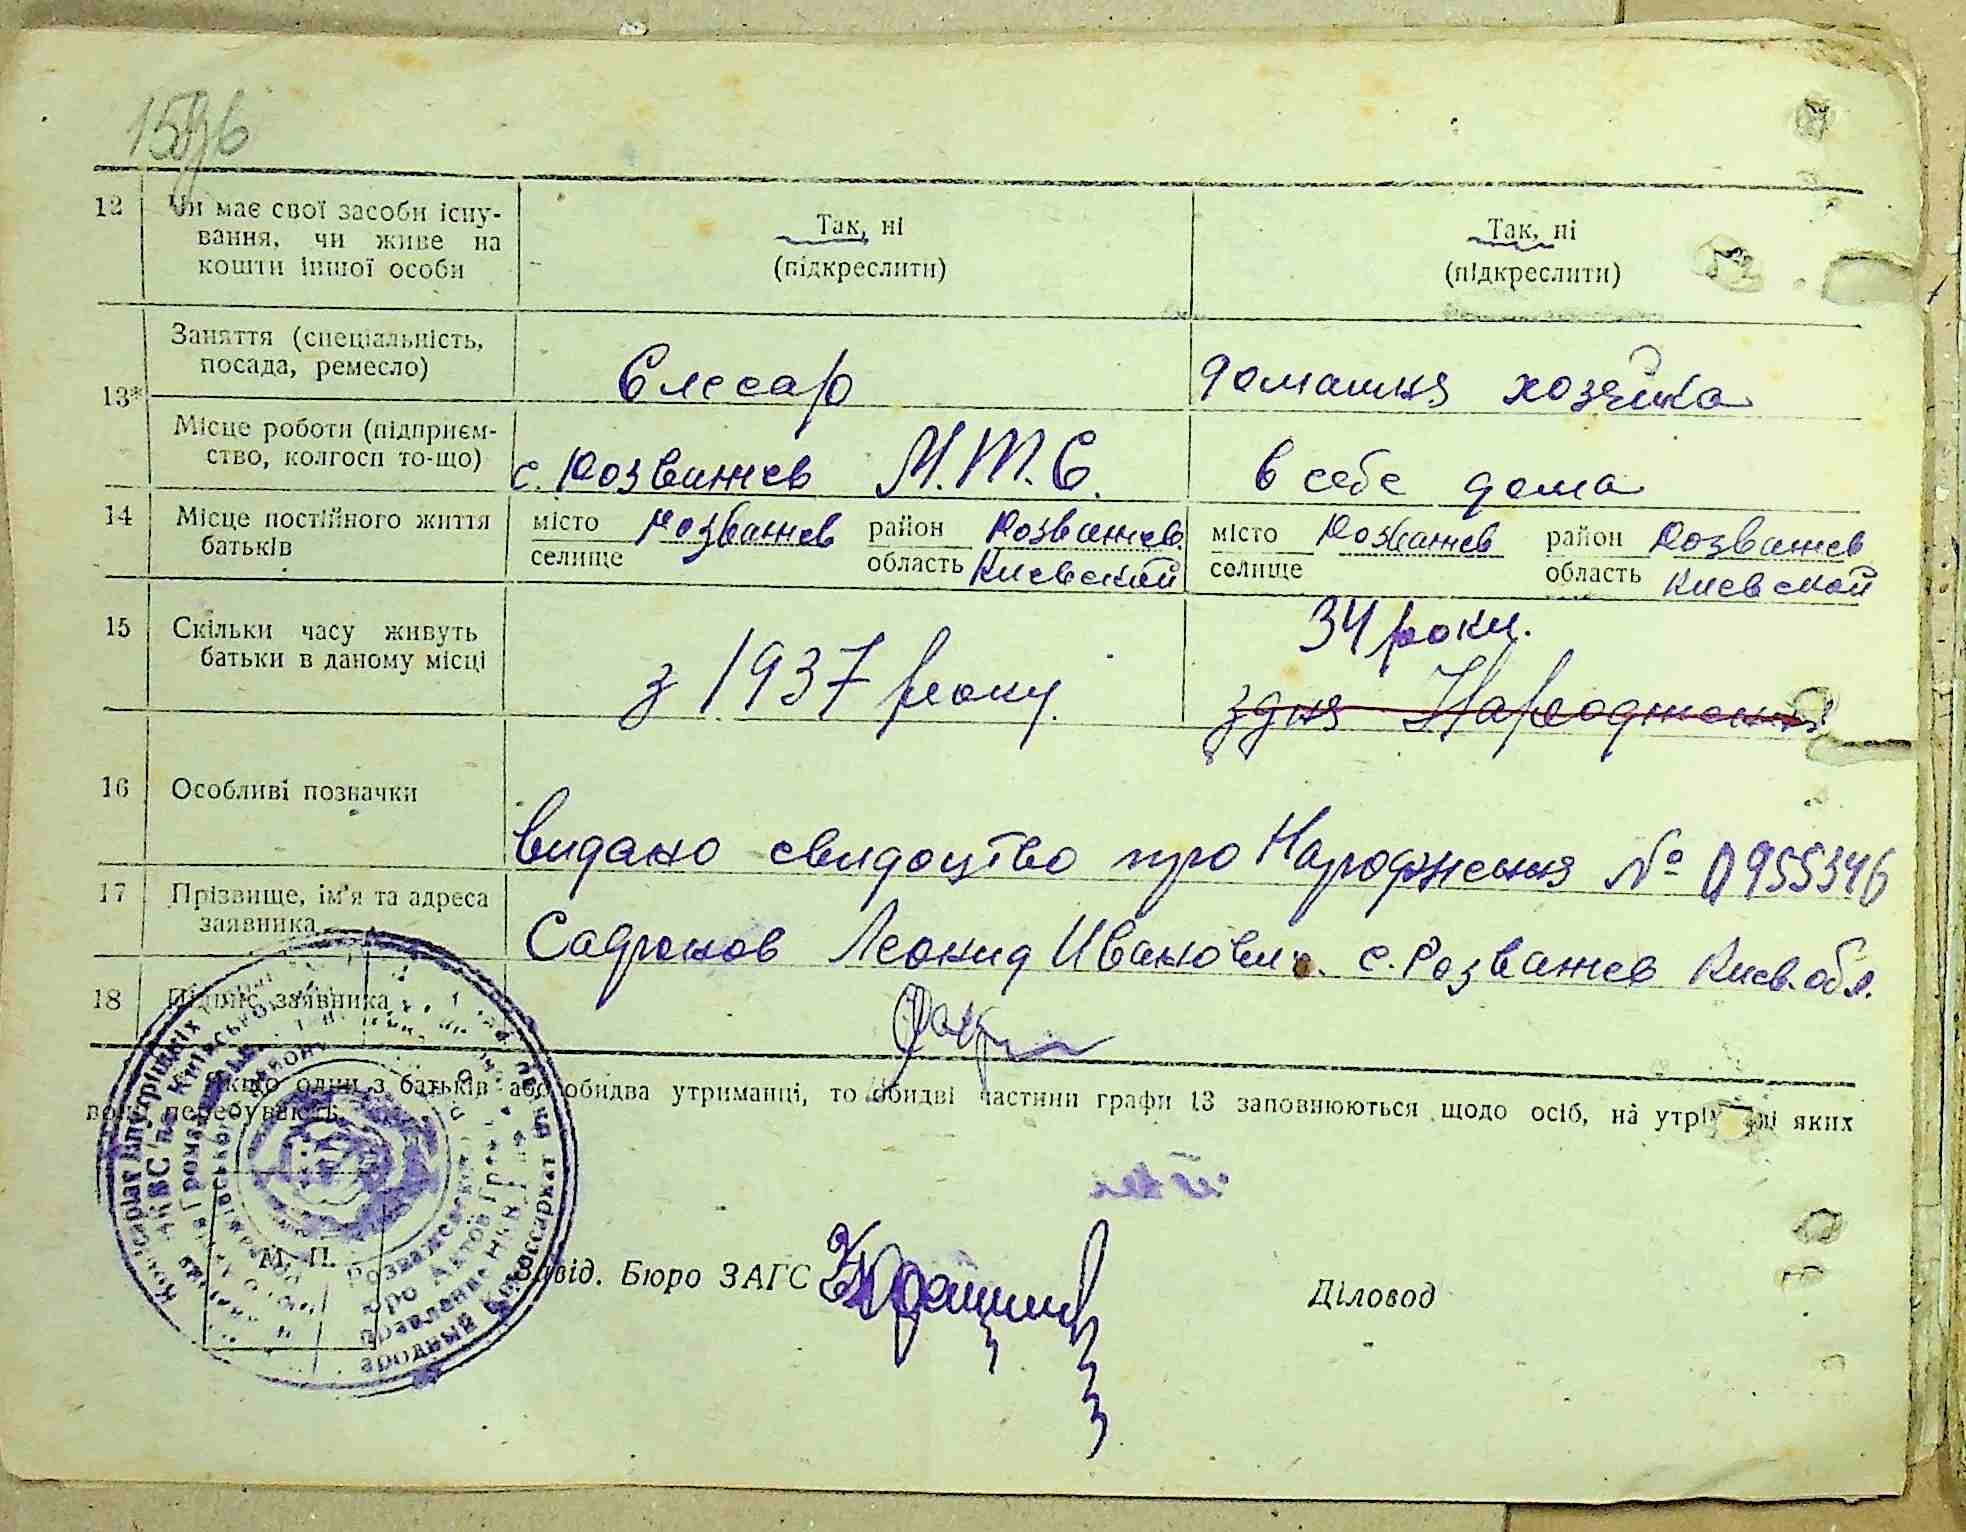 12 Чи має свої засоби існу-
вання, чи живе на
кошти іншої особи
Так, ні
(підкреслити)
Так, ні
(підкреслити)
13*
Заняття (спеціальність,
посада, ремесло)
Слесар
домашня хозяйка
Місце роботи (підприєм-
ство, колгосп то-що)
с. Розважев М.Т.С.
в себе дома
14 Місце постійного життя
батьків
місто
селище
Розважев
район
область
Розважев
Киевской
місто
селище
Розважев
район
область
Розважев
Киевской
15 Скільки часу живуть
батьки в даному місці
з 1937 року.
34 роки.
з дня Народження
16 Особливі позначки
видано свидоцтво про Народження № 0955346
17 Прізвище, ім'я та адреса
заявника
Сафронов Леонид Иванович. с. Розважев Киев. обл.
18 Підпис заявника
Якщо один з батьків або обидва утриманці, то обидві частини графи 13 заповнюються щодо осіб, на утриманні яких
вони перебувають.
М. П.
Завід. Бюро ЗАГС
Діловод